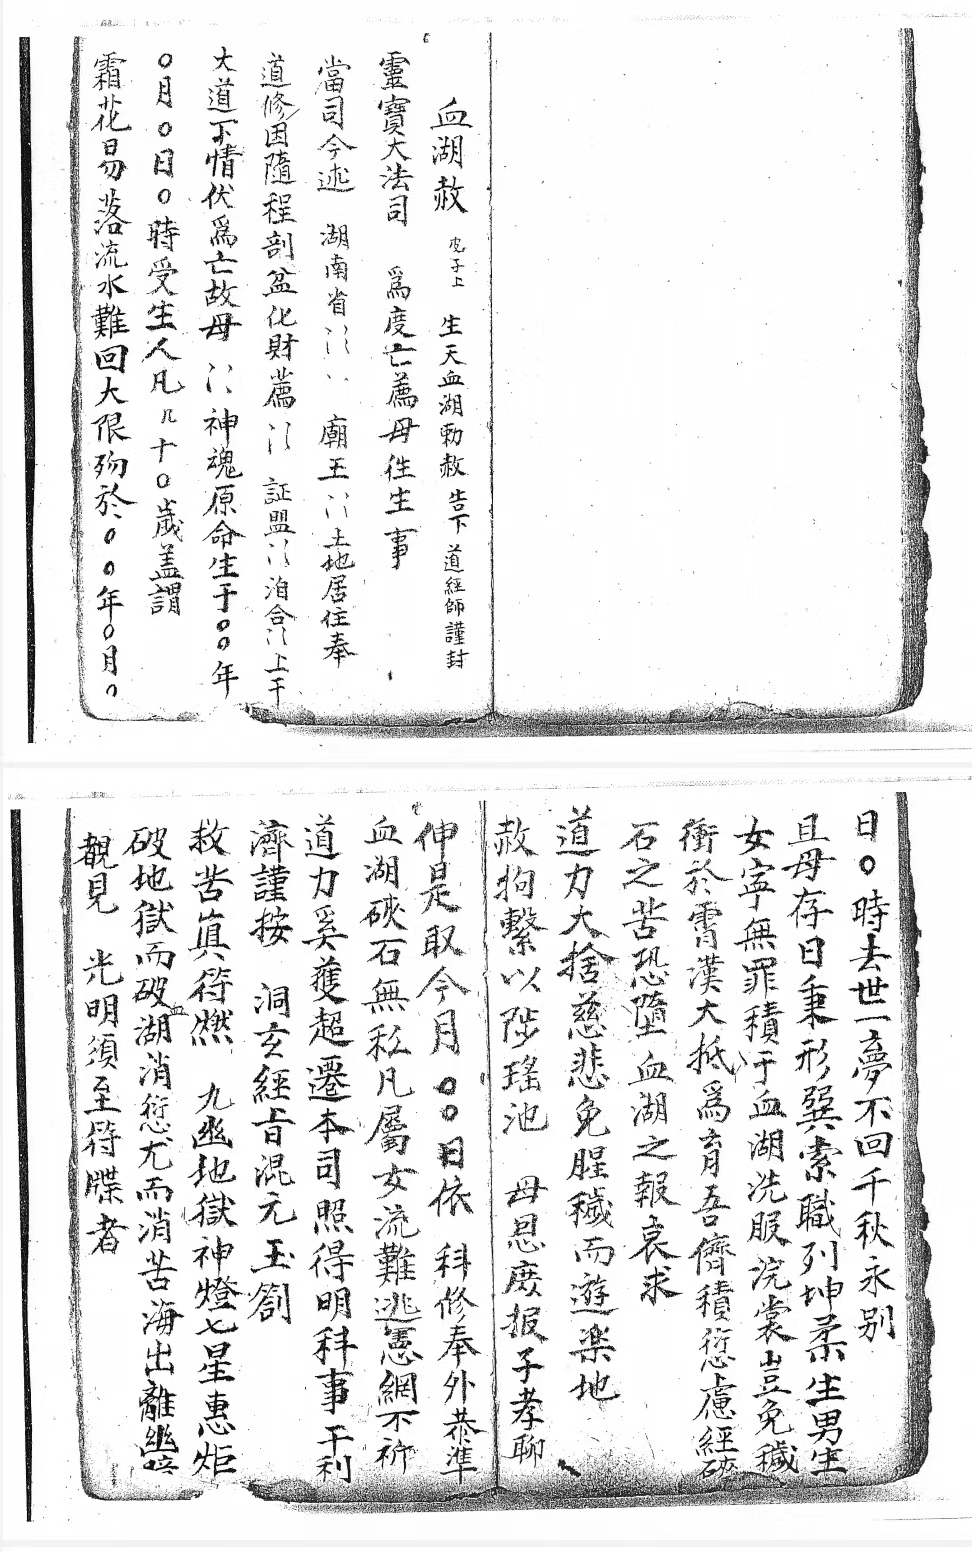 血湖赦 皮子上 生天血湖勅赦 告下 道經師謹封
靈寶大法司 爲度亡薦母徃生事
當司今述 湖南省 廟王 土地居住奉
道修因隨程剖盆化財薦 証盟 洎合 上干
大道下情伏爲亡故母 神魂原命生于〇〇年
〇月〇日〇時受生人凡几十〇歲盖謂
霜花易落流水難回大限殁於〇〇年〇月〇
日〇時去世一夢不回千秋永别
且母存日秉形巽索職列坤柔生男生
女寧無罪積于血湖洗服浣裳豈免穢
衝於霄漢大抵爲育吾儕積愆慮經硤
石之苦恐墮血湖之報哀求
道力大捨慈悲免腥穢而遊楽地
赦拘繫以陟瑤池 母恩庶报子孝聊
伸是取今月〇〇日依 科修奉外恭準
血湖硤石無私凡屬女流難逃憲網不祈
道力奚獲超遷本司照得明科事干利
濟謹按 洞玄經旨混元玉劄
救苦真符燃 九幽地獄神燈七星惠炬
破地獄而破血湖消愆尤而消苦海出離幽
覩見 光明須至符牒者